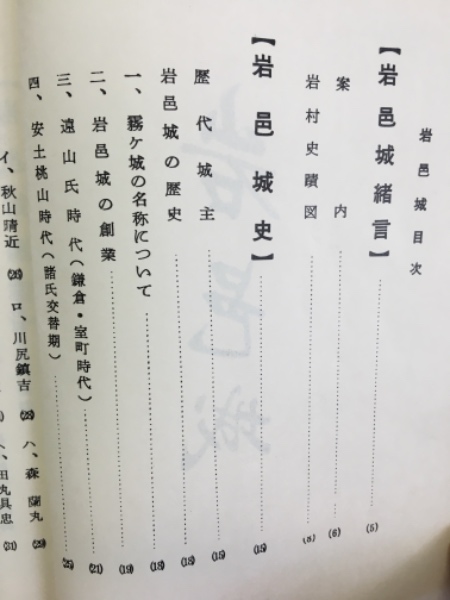 岩邑城目次
【岩邑城緒言】……(5)
案内……(6)
岩村史蹟図……
【岩邑城史】……(15)
歴代城主……(15)
岩邑城の歴史……(18)
一、霧ケ城の名称について……(18)
二、岩邑城の創業……(19)
三、遠山氏時代(鎌倉・室町時代)……(21)
四、安土桃山時代(諸氏交替期)……(25)
イ、秋山晴近 (26) ロ、川尻鎮吉 (28) ハ、森蘭丸 (29)
ヘ、田丸具忠 (31)